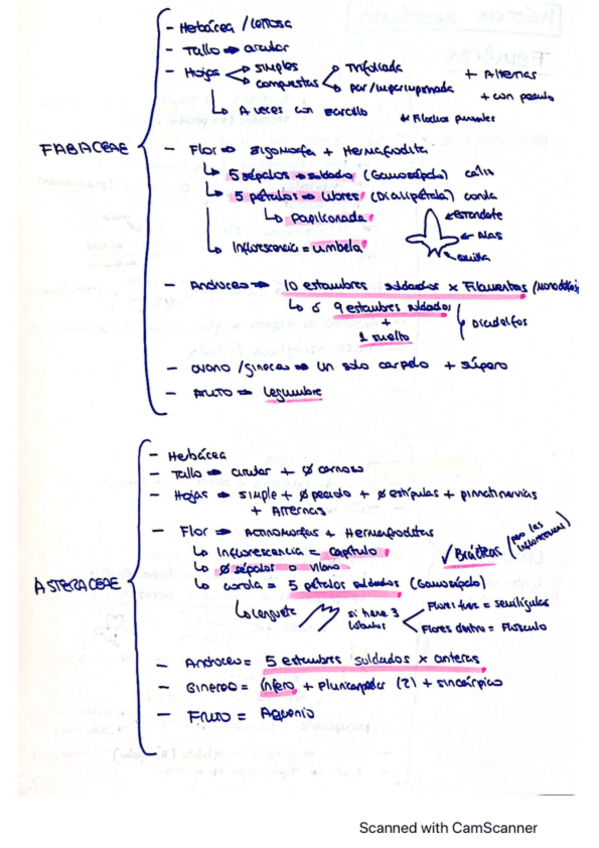 - Herbácea / leñosa
- Tallo ⇒ circular
- Hojas simples compuestas Trifoliada par/imparipinnada + Alternas + con peciolo
↳ A veces con zarcillo
FABACEAE
- Flor ⇒ zigomorfa + Hermafrodita
↳ 5 sépalos ⇒ soldado (Gamosépalo) caliz
↳ 5 pétalos ⇒ libres (Dialipétala) corola
↳ Papilionada
← estandarte
← Alas
Quilla
↳ Inflorescencia = umbela
- Androceo ⇒ 10 estambres soldados x Filamentos
↳ ó 9 estambres soldados
+
1 suelto
Diadelfos
- ovario / gineceo ⇒ un solo carpelo + súpero
- FRUTO ⇒ Legumbre
- Herbácea
- Tallo ⇒ circular + ∅ carnoso
- Hojas ⇒ simple + ∅ peciolo + ∅ estípulas + pinnatinervias
+ Alternas
- Flor ⇒ Actinomorfas + Hermafroditas
↳ Inflorescencia = capítulo
✓ Brácteas
↳ ∅ sépalos o vilano
↳ corola = 5 pétalos soldados (Gamosépalo)
ASTERACEAE
si tiene 3
Flores fuera = semilígulas
Flores dentro = Flósculo
- Androceo = 5 estambres soldados x anteras
- Gineceo = ínfero + pluricarpelar (2) + sincárpico
- Fruto = Aquenio
Scanned with CamScanner